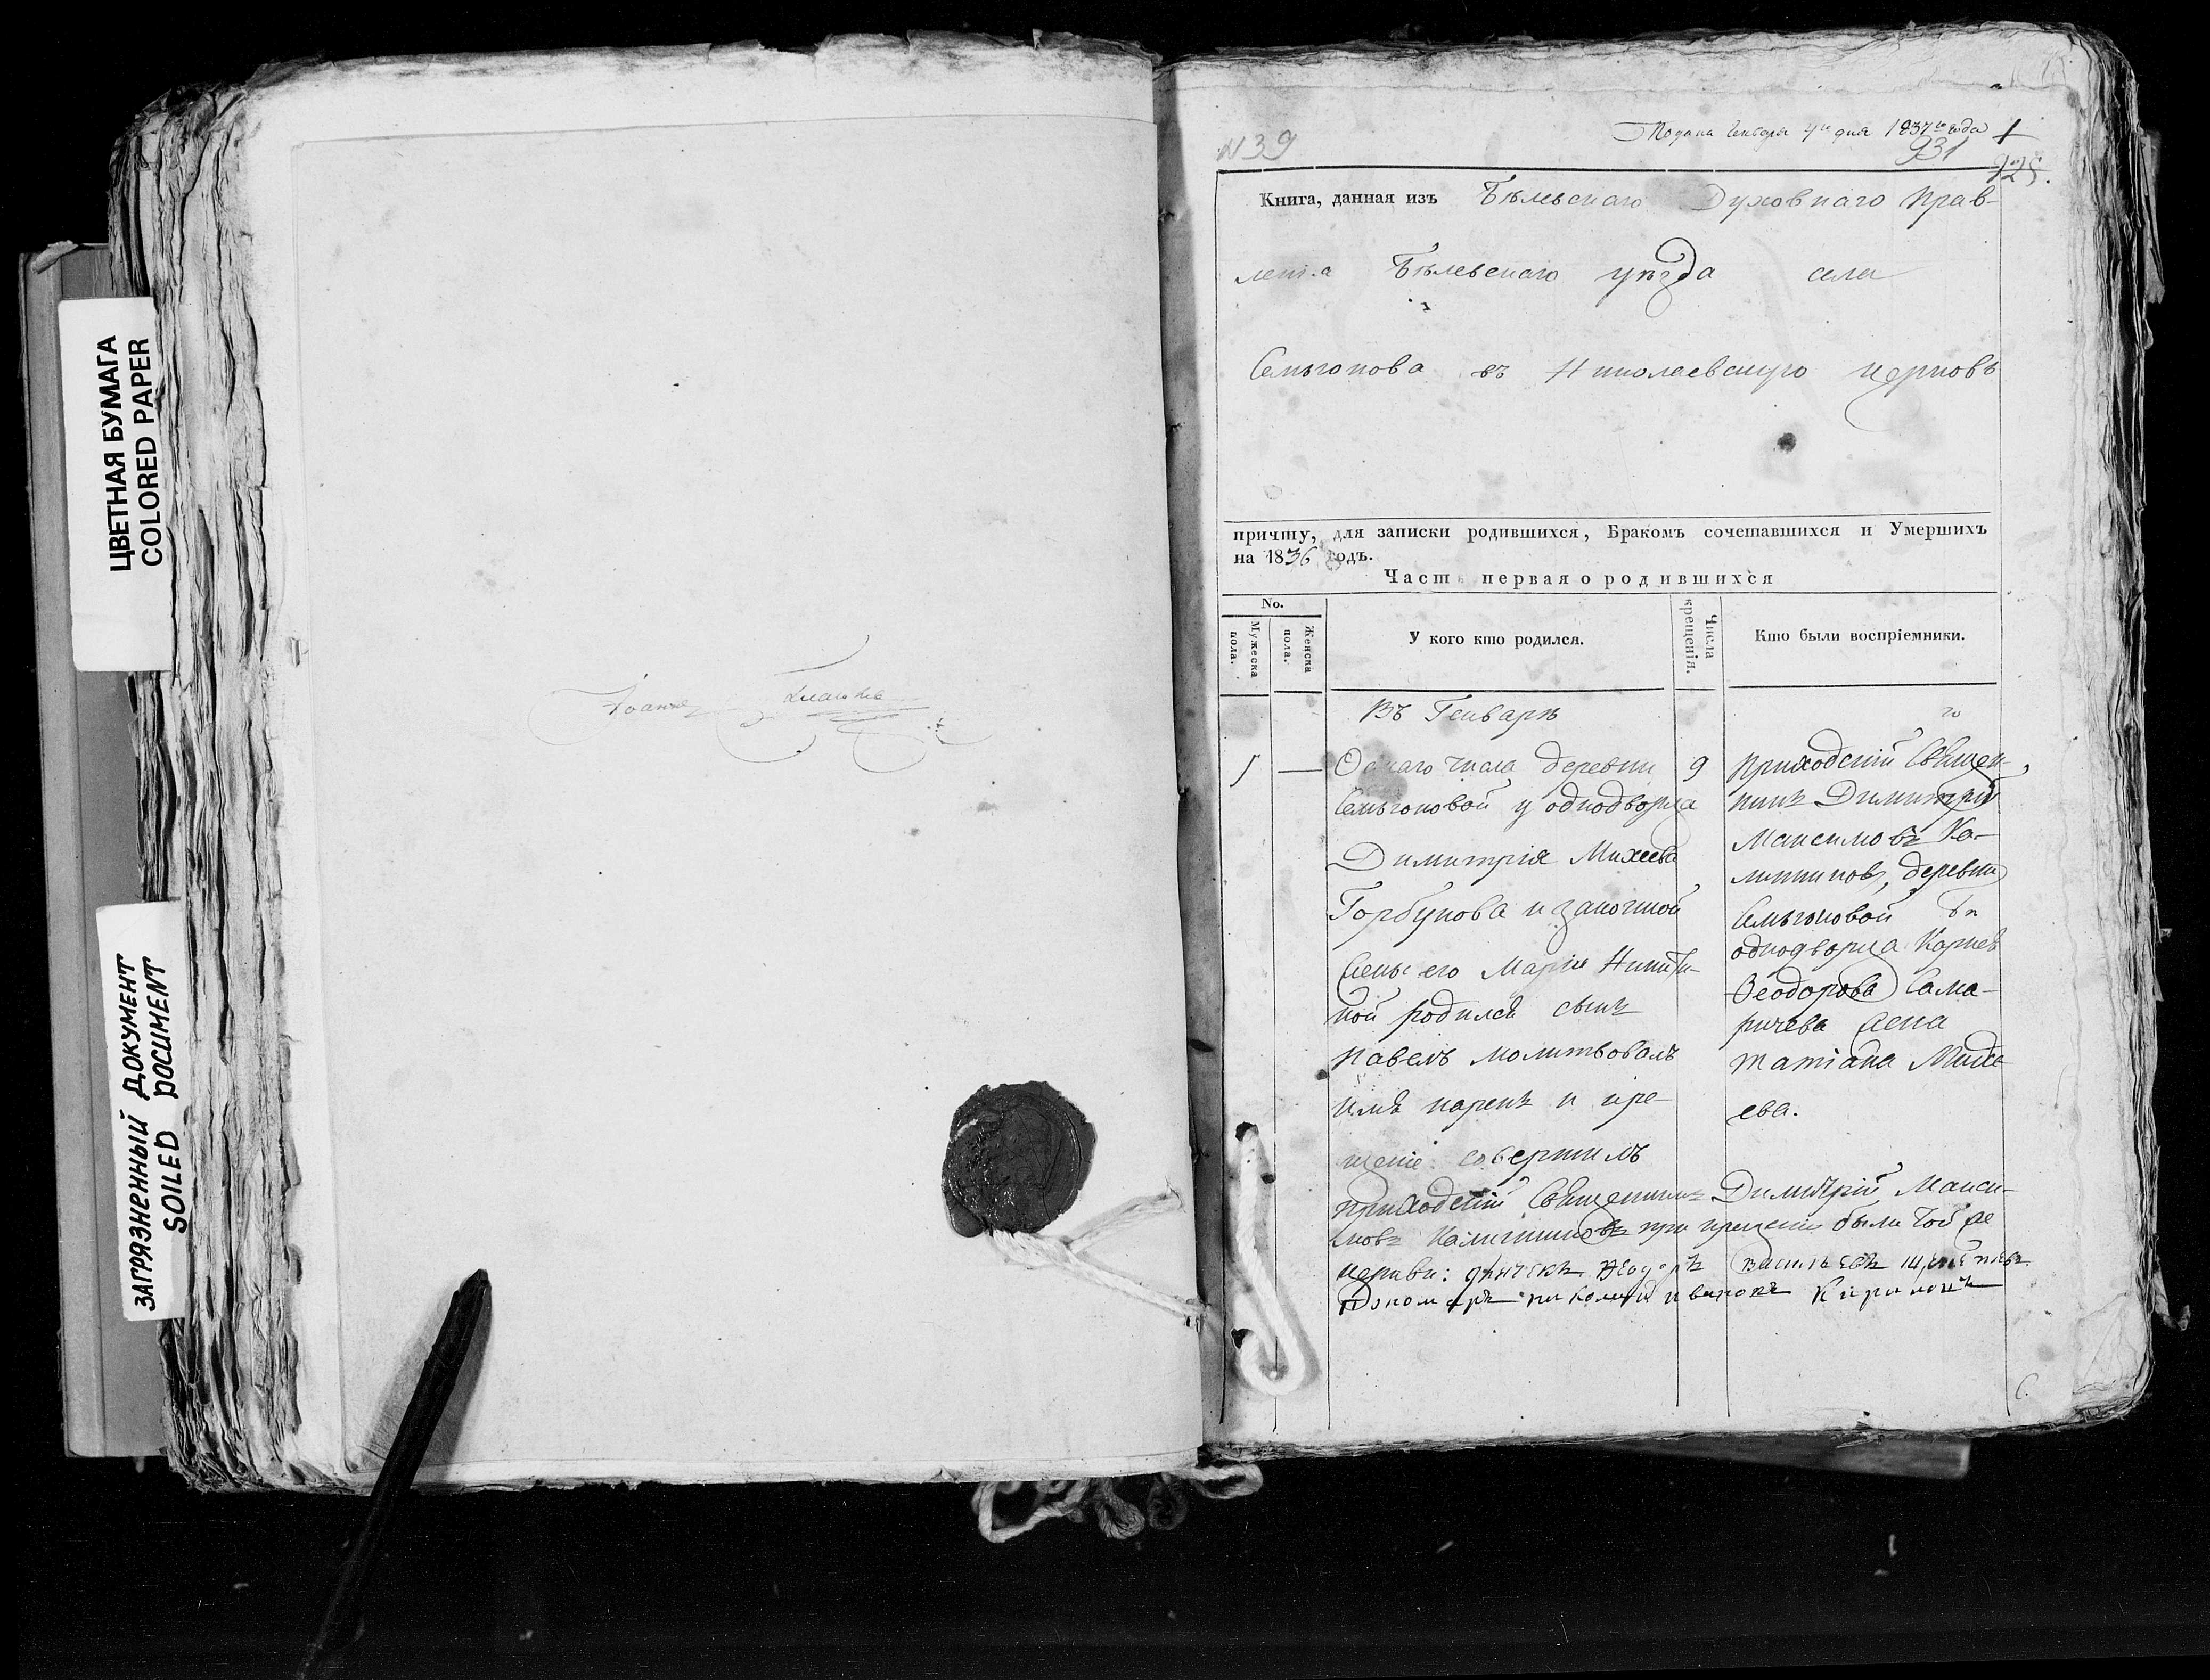 ЦВЕТНАЯ БУМАГА
COLORED PAPER
ЗАГРЯЗНЕННЫЙ ДОКУМЕНТ
SOILED DOCUMENT
N 39
дня 1837 года 1
931
925.
Книга, данная изъ Бѣлевскаго Духовнаго Прав-
ленія Бѣлевскаго уѣзда села
Сенюхонова въ Николаевскую церковь
причту, для записки родившихся, Бракомъ сочетавшихся и Умершихъ
на 1836 годъ.
Часть первая о родившихся
No.
Мужеска пола.
Женска пола.
У кого кто родился.
Числа крещенія.
Кто были воспріемники.
Въ Генварѣ
1 — числа деревни 9
у однодворца
Димитрія Михеева
Горбунова и законной
жены его Маріи Никити-
ной родился сынъ
Павелъ молитвовалъ
имя нарекъ и кре-
щеніе совершилъ
Приходскій Священ-
никъ Димитрій
Максимовъ Ка-
линниковъ, деревни
однодворца Карнея
Феодорова Сама-
ричева жена
Татіана Михе
ева.
приходскій Священникъ Димитрій Макси-
мовъ Калинниковъ при крещеніи были той же
церкви: дьячекъ Феодоръ Васильевъ
Пономарь Николай Ивановъ